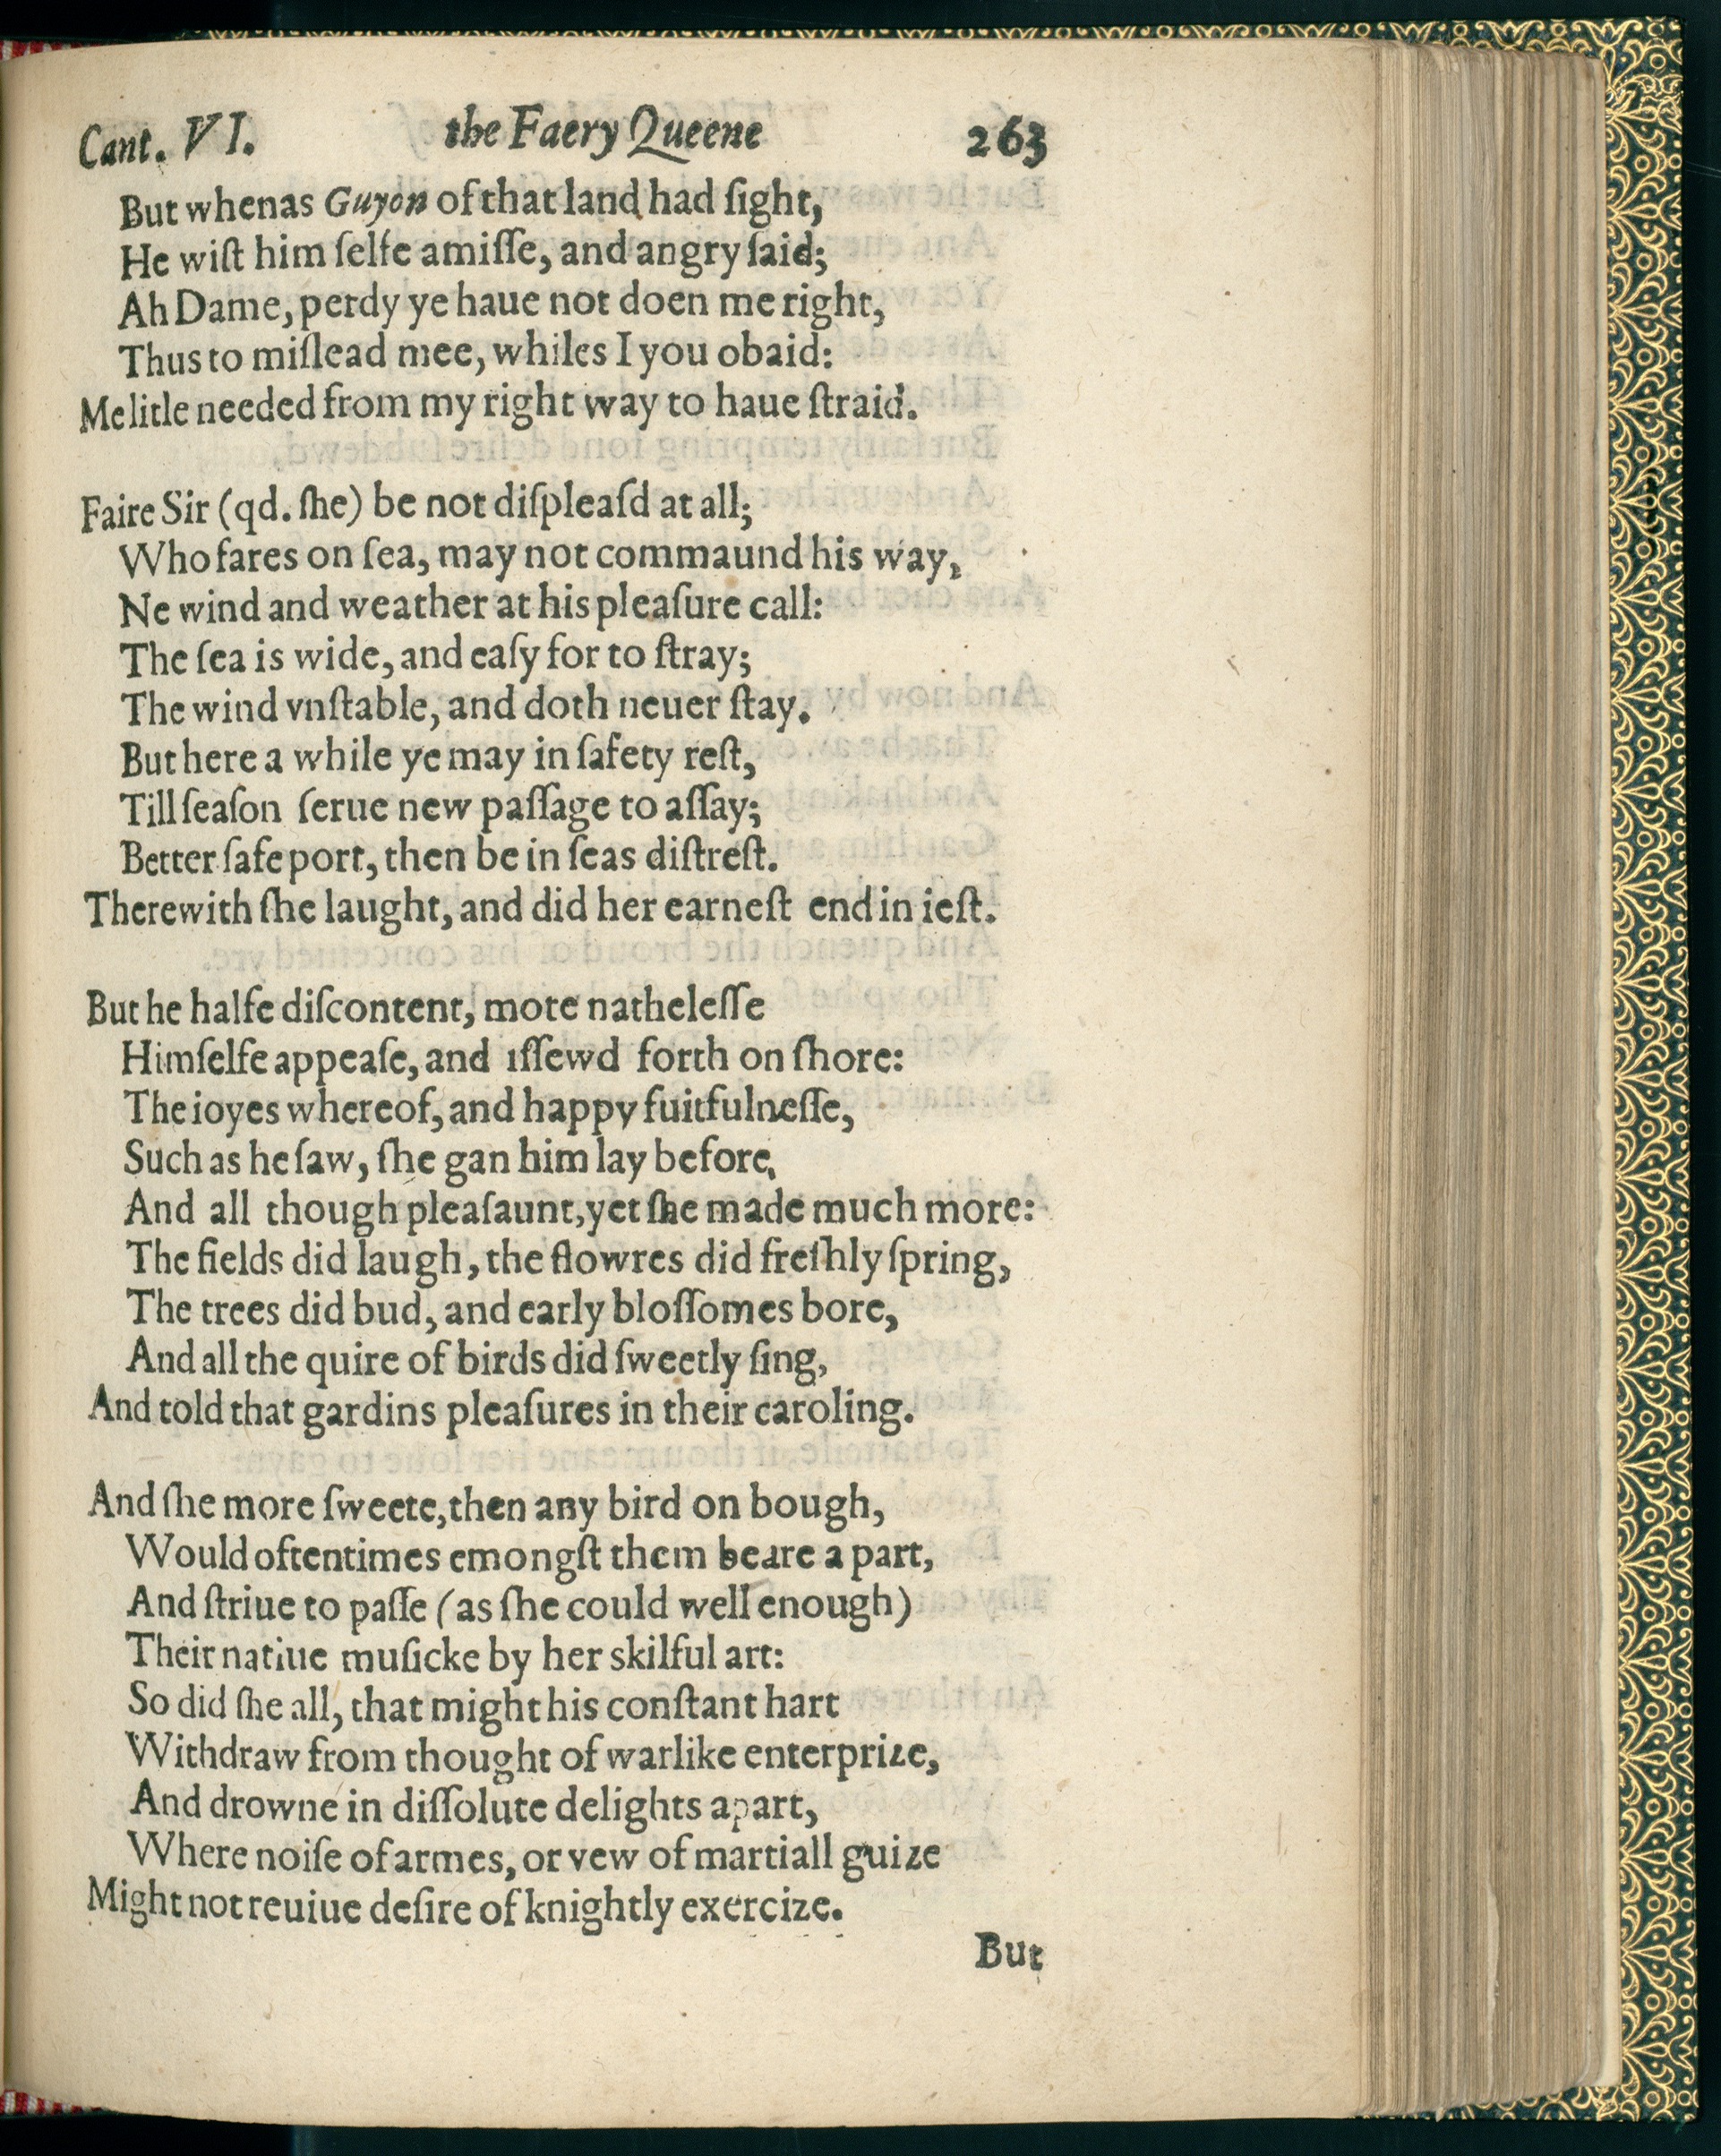 Cant. VI. the Faery Queene 263
But whenas Guyon of that land had ſight,
He wiſt him ſelfe amiſſe, and angry ſaid;
Ah Dame, perdy ye haue not doen me right,
Thus to miſlead mee, whiles I you obaid:
Me litle needed from my right way to haue ſtraid.
Faire Sir (qd. ſhe) be not diſpleaſd at all;
Who fares on ſea, may not commaund his way,
Ne wind and weather at his pleaſure call:
The ſea is wide, and eaſy for to ſtray;
The wind vnſtable, and doth neuer ſtay.
But here a while ye may in ſafety reſt,
Till ſeaſon ſerue new paſſage to aſſay;
Better ſafe port, then be in ſeas diſtreſt.
Therewith ſhe laught, and did her earneſt end in ieſt.
But he halfe diſcontent, mote natheleſſe
Himſelfe appeaſe, and iſſewd forth on ſhore:
The ioyes whereof, and happy fuitfulneſſe,
Such as he ſaw, ſhe gan him lay before,
And all though pleaſaunt, yet ſhe made much more:
The fields did laugh, the flowres did freſhly ſpring,
The trees did bud, and early bloſſomes bore,
And all the quire of birds did ſweetly ſing,
And told that gardins pleaſures in their caroling.
And ſhe more ſweete, then any bird on bough,
Would oftentimes emongſt them beare a part,
And ſtriue to paſſe (as ſhe could well enough)
Their natiue muſicke by her skilful art:
So did ſhe all, that might his conſtant hart
Withdraw from thought of warlike enterprize,
And drowne in diſſolute delights apart,
Where noiſe of armes, or vew of martiall guize
Might not reuiue deſire of knightly exercize.
But